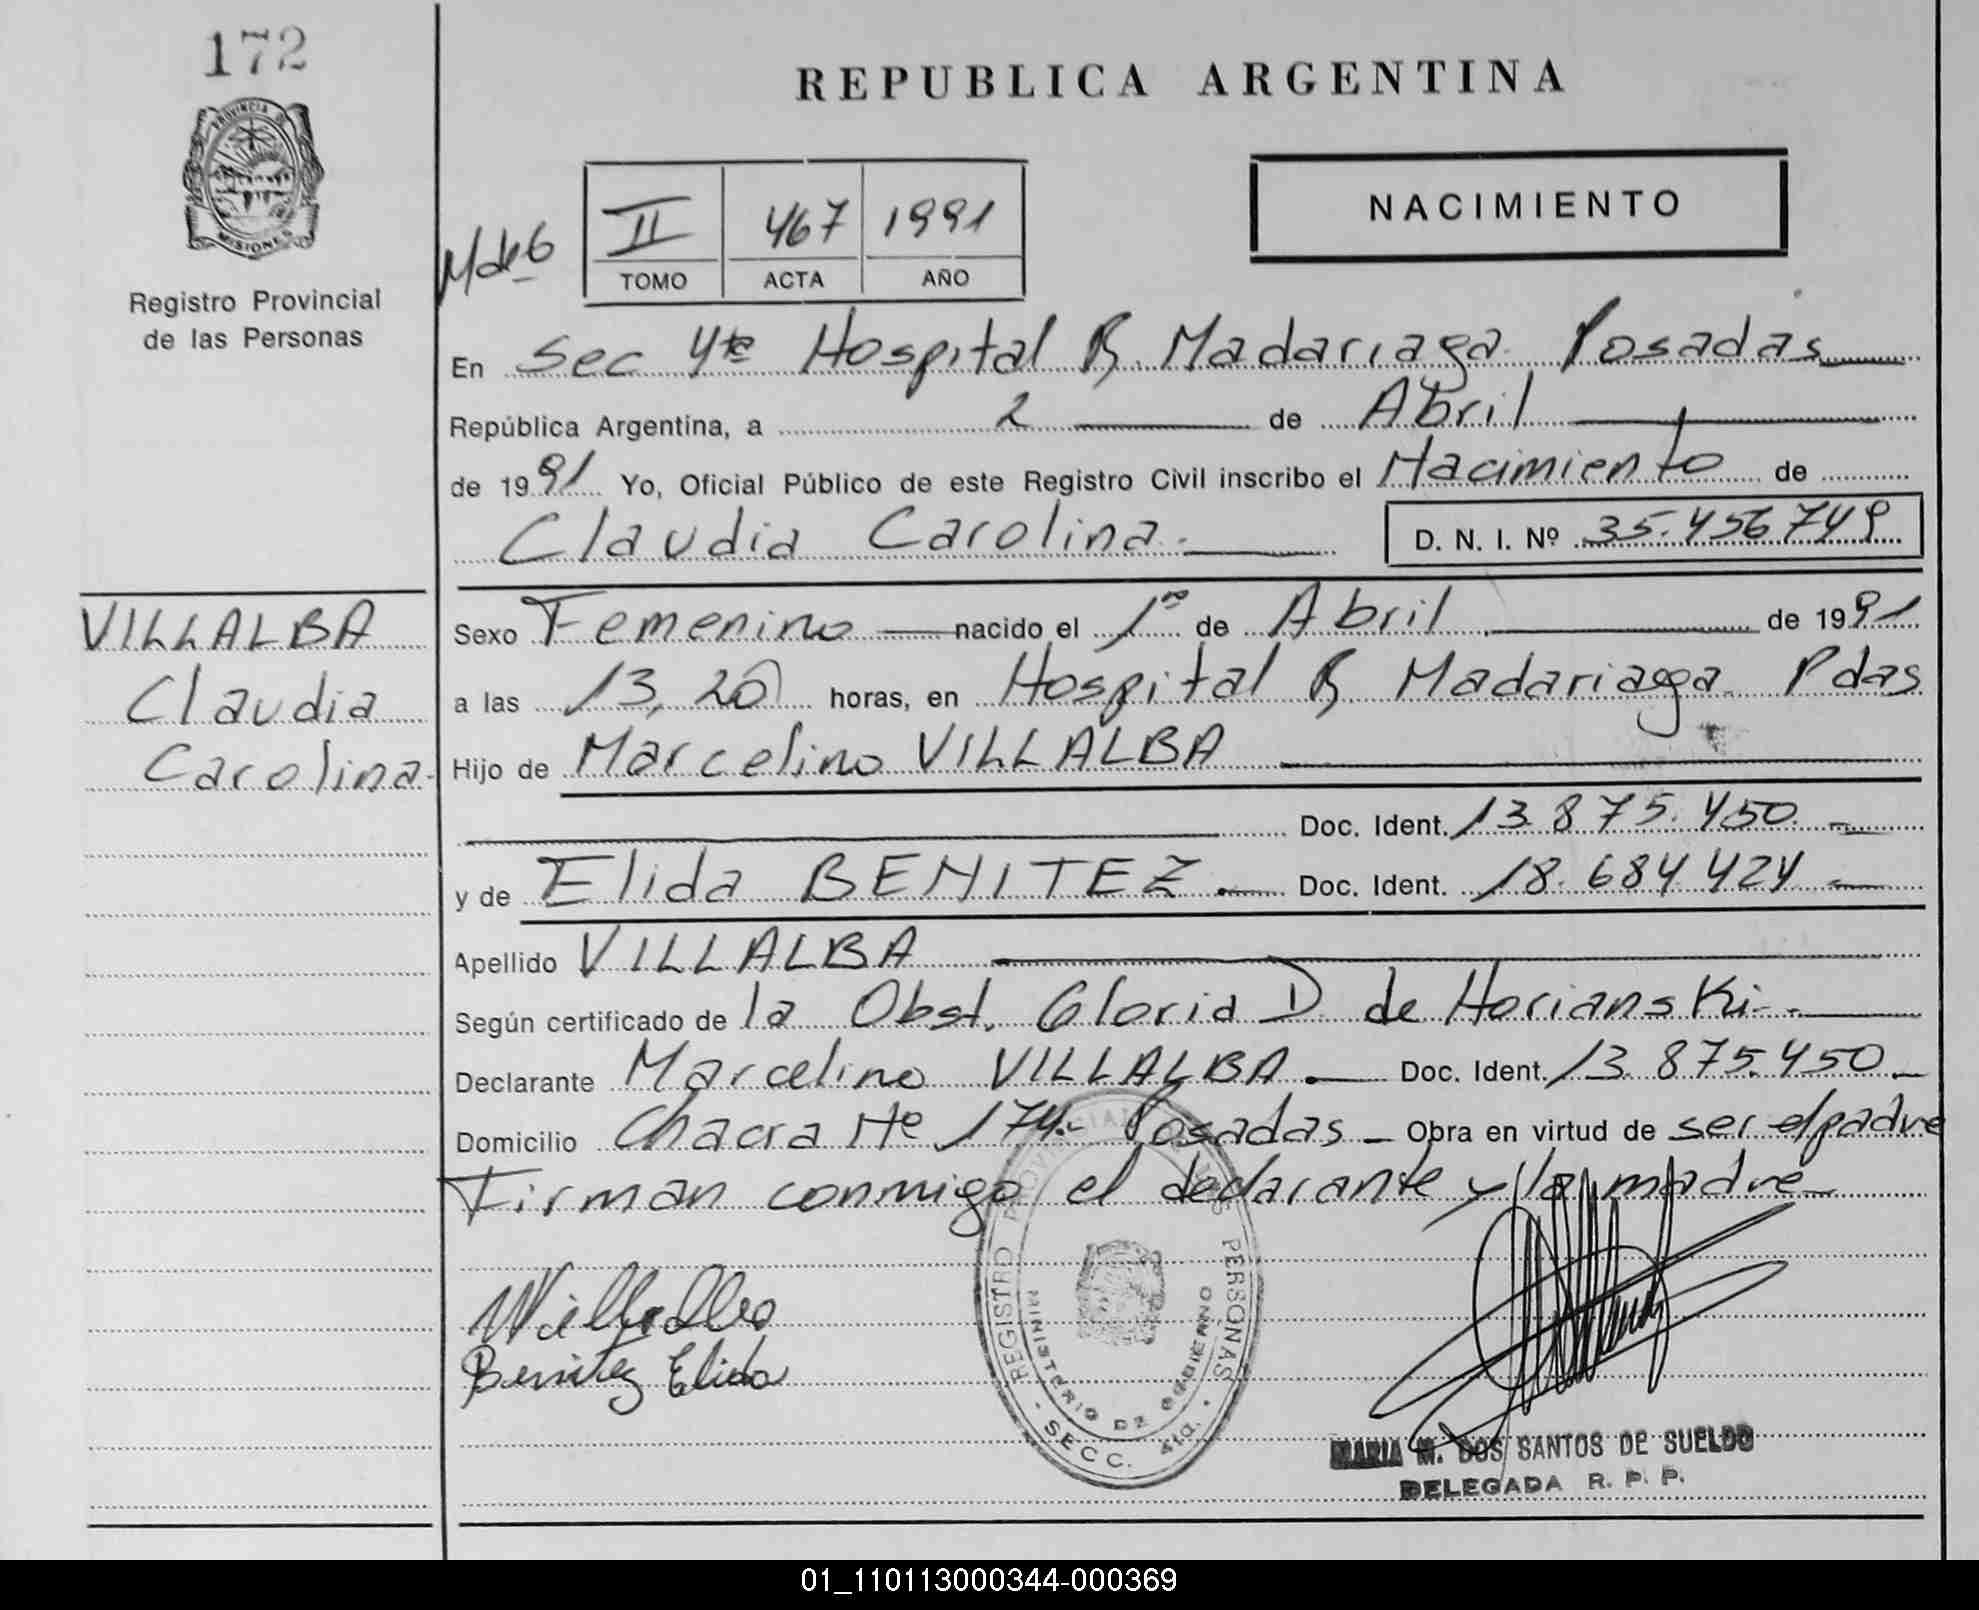 172
PROVINCIA DE
MISIONES
Registro Provincial
de las Personas
VILLALBA
Claudia
Carolina.
REPUBLICA ARGENTINA
NACIMIENTO
II 467 1991
TOMO ACTA AÑO
En Sec 4ta Hospital R. Madariaga Posadas
República Argentina, a 2 de Abril
de 1991 Yo, Oficial Público de este Registro Civil inscribo el Nacimiento de
Claudia Carolina. D. N. I. Nº 35.456 749
Sexo Femenino nacido el 1º de Abril de 1991
a las 13,20 horas, en Hospital R Madariaga Pdas
Hijo de Marcelino VILLALBA
Doc. Ident. 13.875.450.
y de Elida BENITEZ. Doc. Ident. 18.684 424
Apellido VILLALBA
Según certificado de la Obst. Gloria D. de Horianski.
Declarante Marcelino VILLALBA. Doc. Ident. 13.875.450
Domicilio Chacra Nº 174. Posadas Obra en virtud de ser el padre
Firman conmigo el declarante y la madre
MVillalba
Benitez Elida
REGISTRO PROVINCIAL DE LAS PERSONAS
MINISTERIO DE GOBIERNO
- SECC. 4ta. -
MARIA M. DOS SANTOS DE SUELDO
DELEGADA R. P. P.
01_110113000344-000369